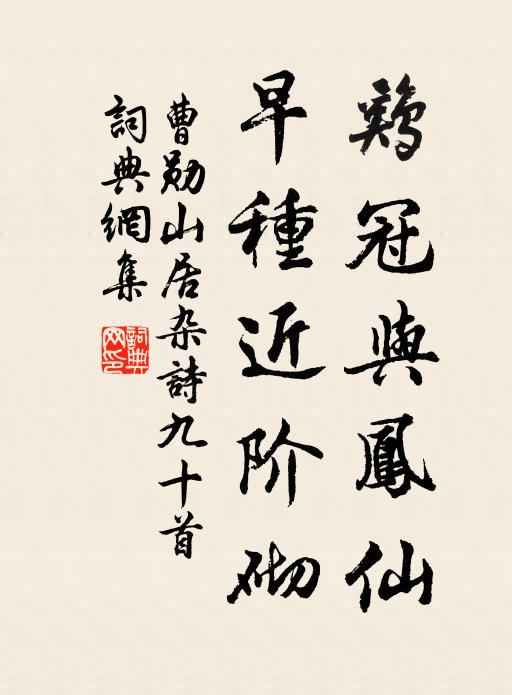 鷄冠與鳳仙
早種近阶砌
曹勋山居杂詩九十首
詞典網集
詞典網印